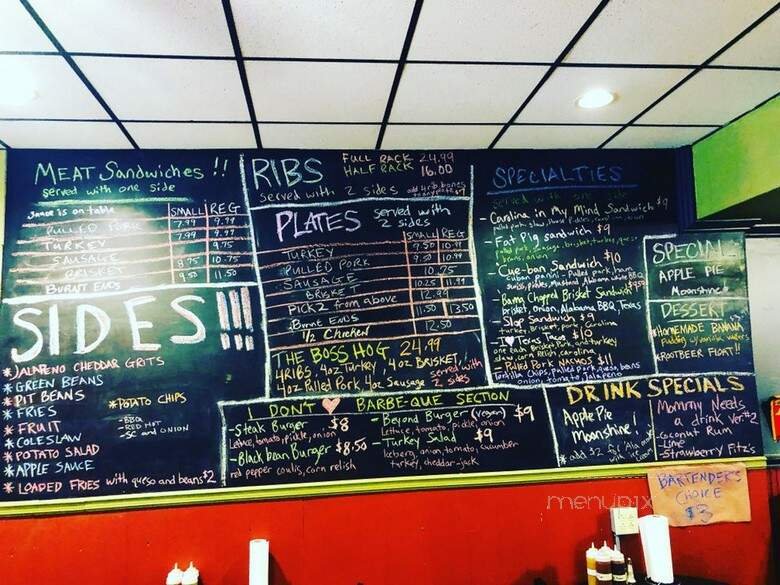 MEAT Sandwiches !!
served with one side
Sauce is on table
SMALL REG
PULLED PORK 7.99 9.99
TURKEY 7.99 9.99
SAUSAGE 9.75
BRISKET 8.75 10.75
BURNT ENDS 9.50 11.50
SIDES!!!
*JALAPENO CHEDDAR GRITS
*GREEN BEANS
*PIT BEANS
*FRIES
*FRUIT
*COLESLAW
*POTATO SALAD
*APPLE SAUCE
*LOADED FRIES with queso and beans $2
*POTATO CHIPS
-BBQ
-RED HOT
-SC and ONION
RIBS
FULL RACK 24.99
HALF RACK 16.00
served with 2 sides
PLATES served with
2 sides
SMALL REG
TURKEY 9.50 10.99
PULLED PORK 9.50 10.99
SAUSAGE 10.75
BRISKET 10.25 11.99
PICK 2 from above 12.99
Burnt ENDS 11.50 13.50
1/2 Chicken 12.50
THE BOSS HOG 24.99
4 RIBS, 4oz Turkey, 4oz BRISKET,
4oz Pulled Pork, 4oz Sausage served with 2 sides
SPECIALTIES
served with one side
- Carolina in My Mind Sandwich $9
pulled pork, slaw,
- Fat Pig sandwich $9
- 'Cue-ban Sandwich $10
cuban panini- Pulled pork, ham,
swiss, pickles, Mustard, Alabama White BBQ
- Bama Chopped Brisket Sandwich
brisket, onion, Alabama BBQ, Texas
- Slop Sandwich $9
turkey, brisket, pork & Carolina
- I ♥ Texas Taco $10
slaw, corn relish, carolina
- Pulled Pork NACHOS $11
tortilla chips, pulled pork, queso, beans
onion, tomato, jalapeno
SPECIAL
APPLE PIE
Moonshine!
DESSERT
*HOMEMADE BANANA
Pudding w/ vanilla wafers
*ROOTBEER FLOAT!!
I DON'T ♥ BARBE-QUE SECTION
-Steak Burger $8
Lettuce, tomato, pickle, onion
-Black bean Burger $8.50
red pepper coulis, corn relish
- Beyond Burger (vegan) $9
Lettuce, tomato, pickle, onion
- Turkey Salad $9
Iceberg, onion, tomato, cucumber
turkey, cheddar-jack
DRINK SPECIALS
Apple Pie
Moonshine!
*add $2 for 'Ala mode
Mommy Needs
a drink Ver.#2
-Coconut Rum
-Lime
-Strawberry Fitz's
BARTENDER'S
CHOICE
$3
menupix